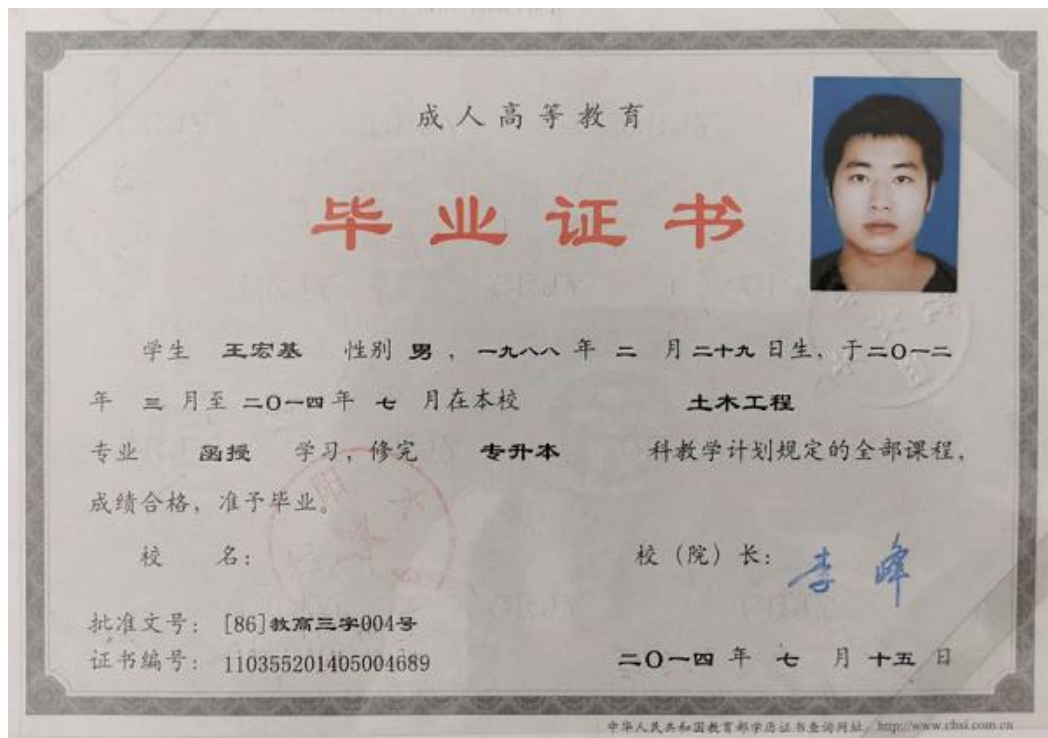 成人高等教育
毕业证书
学生 王宏基 性别 男，一九八八 年 二 月 二十九 日生，于二〇一二
年 三 月至 二〇一四 年 七 月在本校 土木工程
专业 函授 学习，修完 专升本 科教学计划规定的全部课程，
成绩合格，准予毕业。
校 名： 校（院）长：李峰
批准文号：[86]教高三字004号
证书编号：110355201405004689 二〇一四 年 七 月 十五 日
中华人民共和国教育部学历证书查询网址：http://www.chsi.com.cn